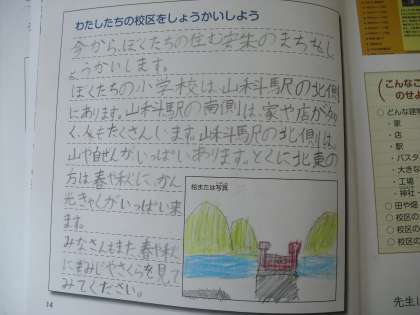 わたしたちの校区をしょうかいしよう
今から、ぼくたちの住む安朱のまちをし
ょうかいします。
ぼくたちの小学校は、山科駅の北側
にあります。山科駅の南側は、家や店が多
く、人もたくさんいます。山科駅の北側は、
山や自ぜんがいっぱいあります。とくに北東の
方は春や秋に、かん
光きゃくがいっぱい来
ます。
みなさんもまた、春や秋
にもみじやさくらを見て
みてください。
絵または写真
14
こんなこ
のせよ
・家
・店
・駅
・バスタ
・大きな
・工場
・神社・
○田や畑
○校区の
○校区の
○校区の
先生に